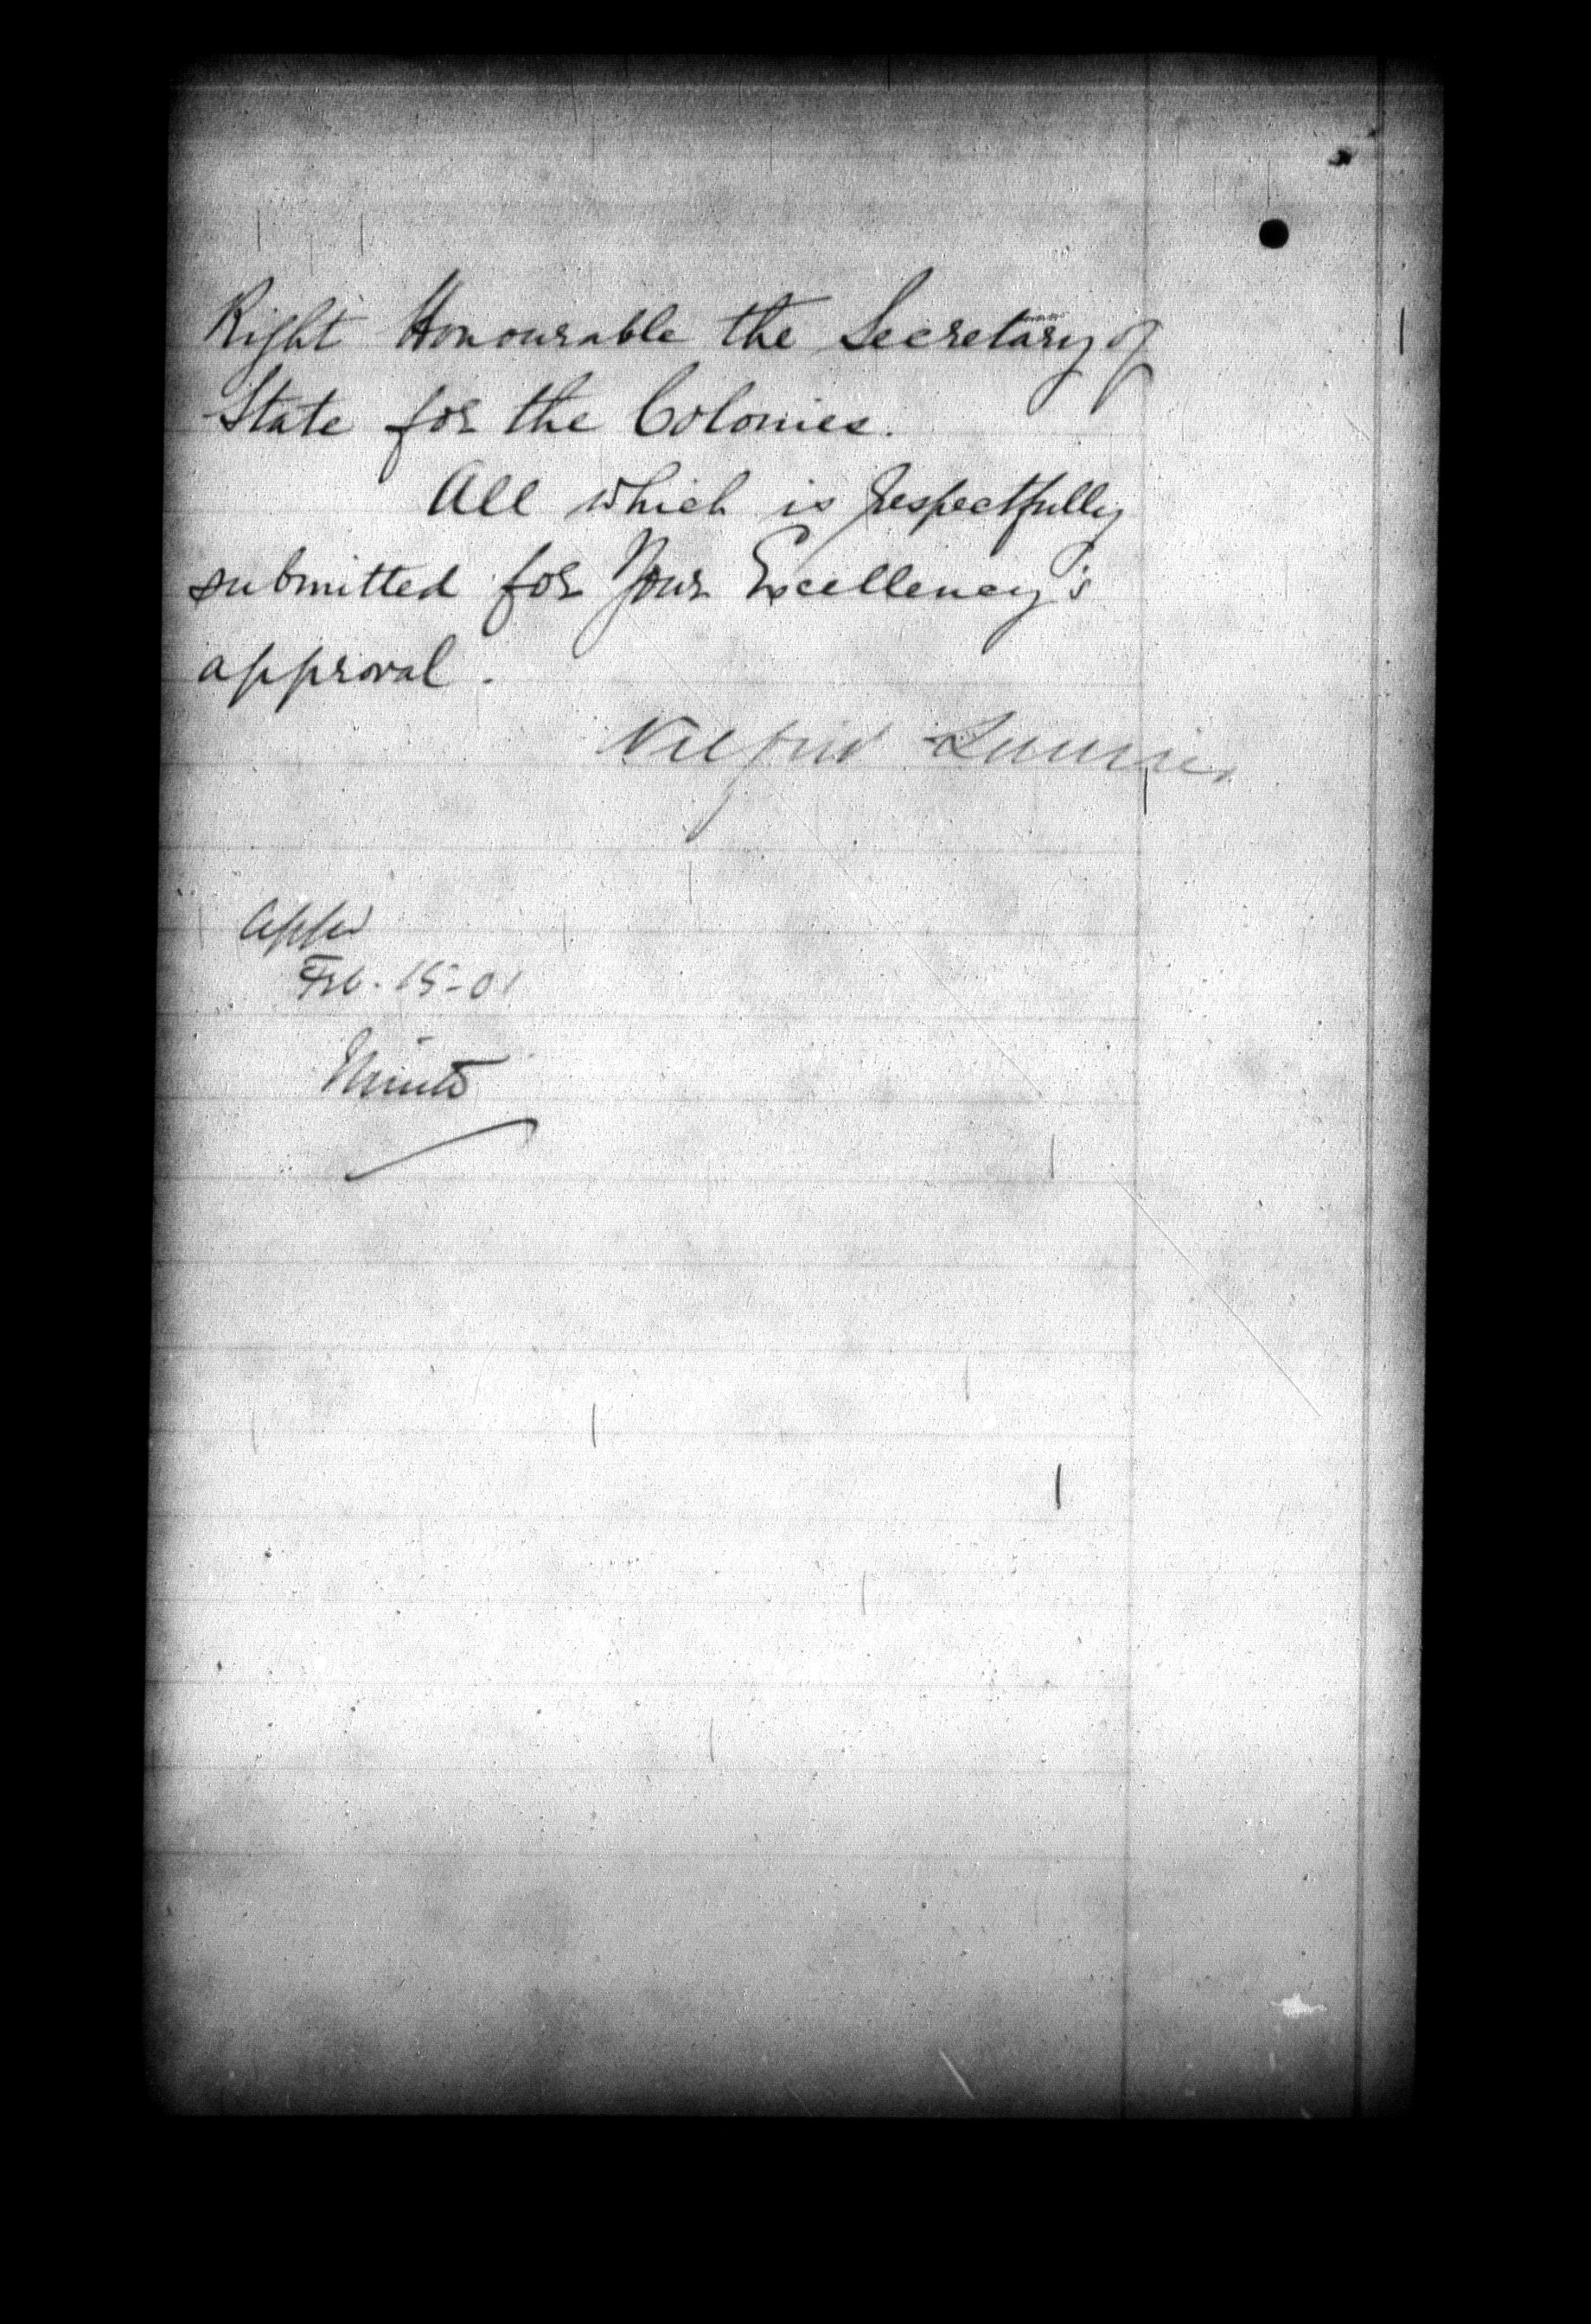 Right Honourable the Secretary of
State for the Colonies.
All which is respectfully
submitted for Your Excellency's
approval.
Wilfrid Laurier
Appd
Feb. 15-01
Minto